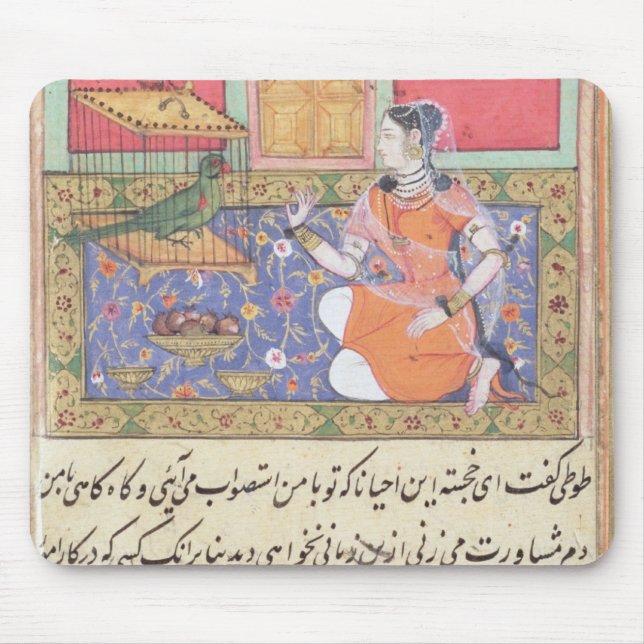 طوطی گفت ای خجسته این احیانا که تو با من استصواب می آیئی و گاه گاهی با من
دم مشاورت می زنی ازین زیانی نخواهی دید بنابر آنک کسی که در کار